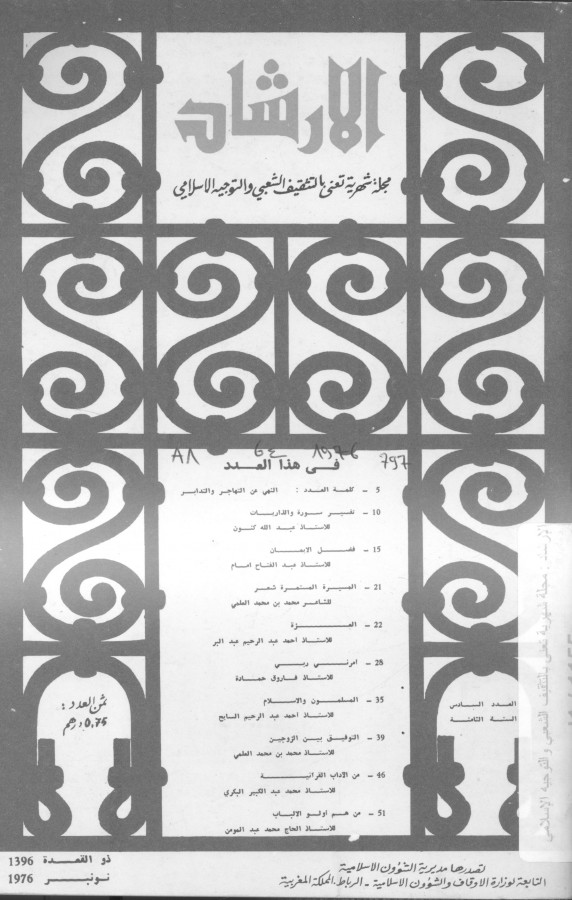 الارشاد
مجلة شهرية تعنى بالتثقيف الشعبي والتوجيه الاسلامي
A1 64 1976 797
في هذا العدد
5 – كلمة العدد : النهي عن التهاجر والتدابر
10 – تفسير سورة والذاريات
للاستاذ عبد الله كنون
15 – فضل الايمان
للاستاذ عبد الفتاح امام
21 – المسيرة المستمرة شعر
للشاعر محمد بن محمد العلمي
22 – العزة
للاستاذ احمد عبد الرحيم عبد البر
28 – امرني ربي
للاستاذ فاروق حمادة
35 – المسلمون والاسلام
للاستاذ احمد عبد الرحيم السايح
39 – التوفيق بين الزوجين
للاستاذ محمد بن محمد العلمي
46 – من الاداب القرانية
للاستاذ محمد عبد الكبير البكري
51 – من هم اولو الالباب
للاستاذ الحاج محمد عبد المومن
العدد السادس
السنة الثامنة
ثمن العدد :
0,75 درهم
الارشاد : مجلة شهرية تعنى بالتثقيف الشعبي والتوجيه الإسلامي
تصدرها مديرية الشؤون الاسلامية
التابعة لوزارة الاوقاف والشؤون الاسلامية - الرباط . المملكة المغربية
ذو القعدة 1396
نونبر 1976